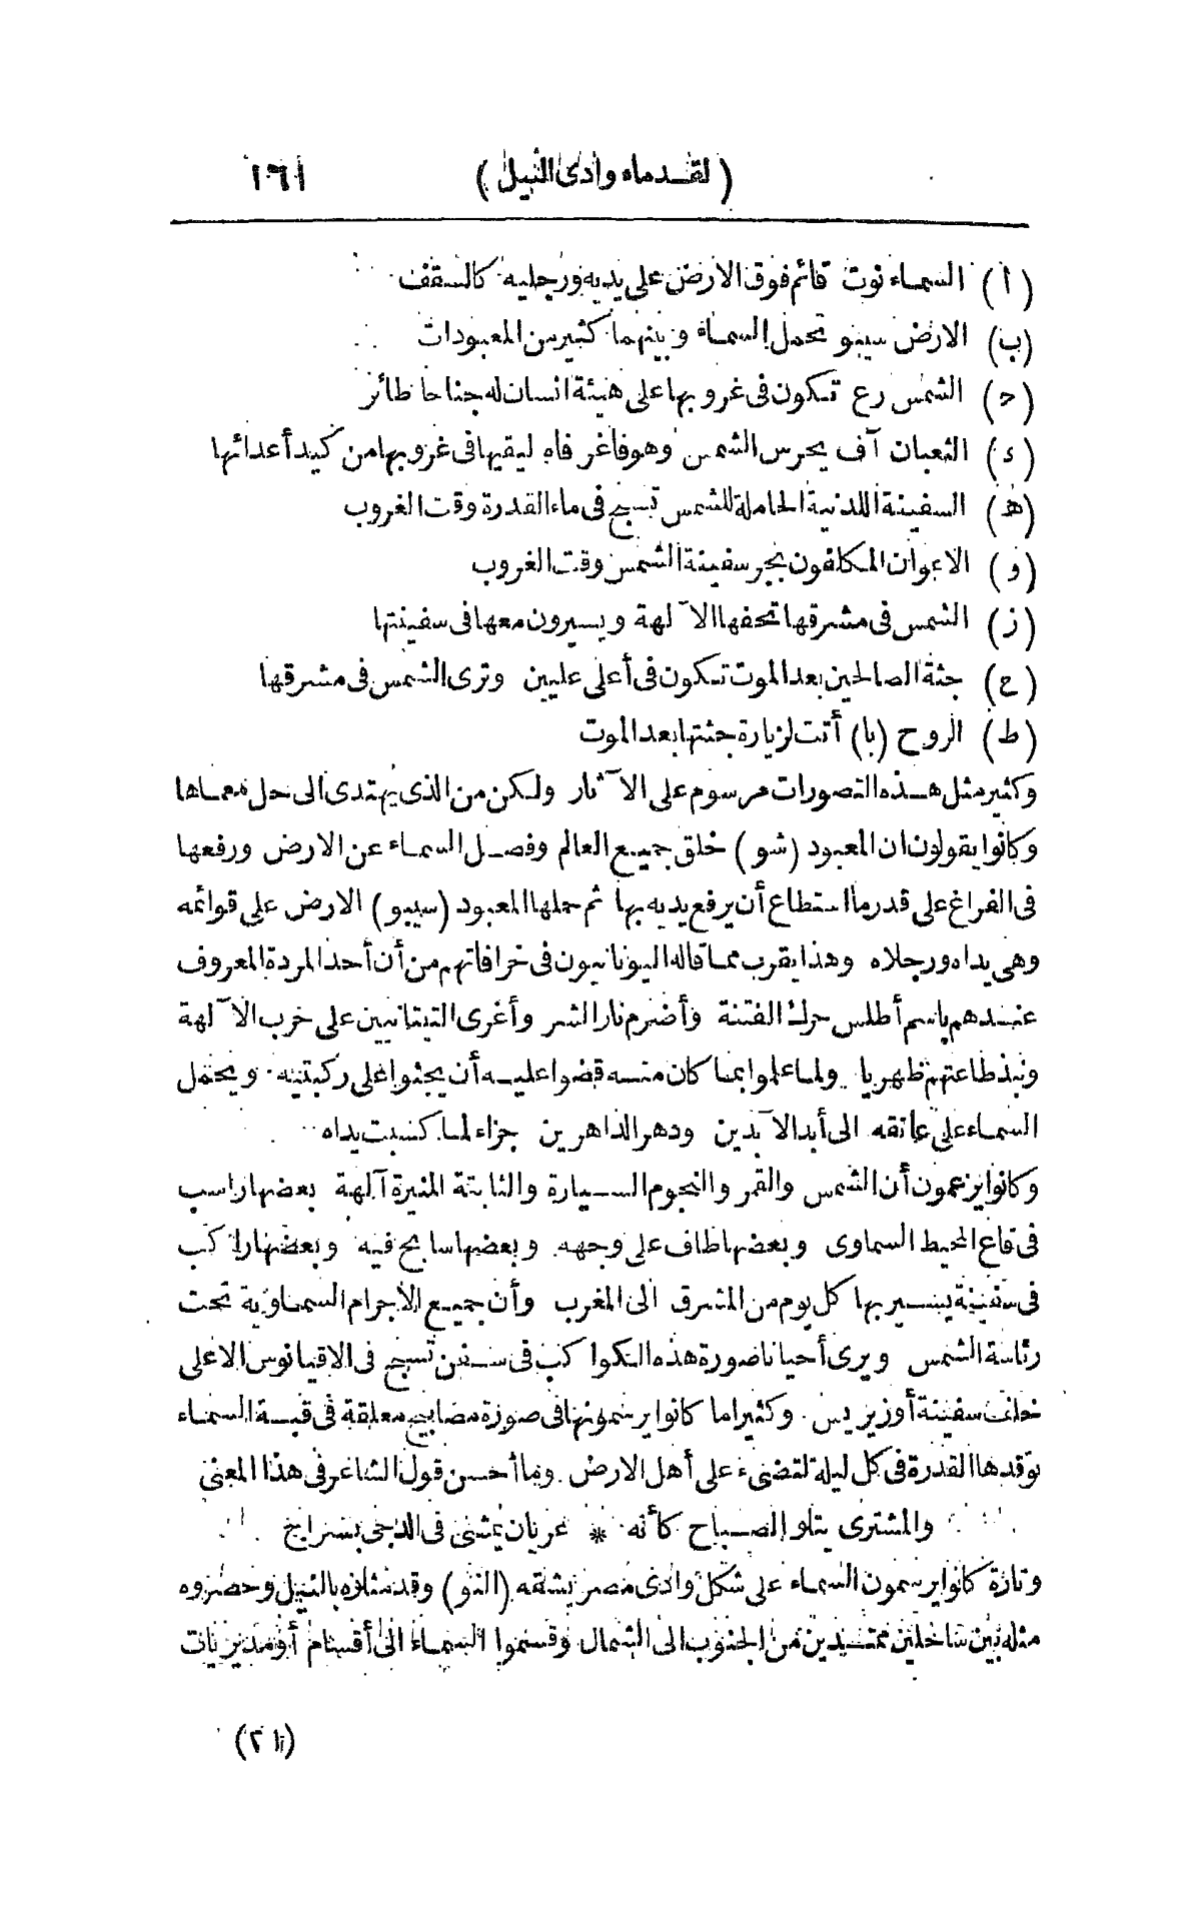 (لقدماء وادى النيل) ١٦١
(ا) السماء نوت قائم فوق الارض على يديه ورجليه كالسقف
(ب) الارض سيبو تحمل السماء وبينهما كثير من المعبودات
(ح) الشمس رع تكون فى غروبها على هيئة انسان له جناحا طائر
(ء) الثعبان آف يحرس الشمس وهو فاغر فاه ليقيها فى غروبها من كيد أعدائها
(ه) السفينة اللدنية الحاملة للشمس تسبح فى ماء القدرة وقت الغروب
(و) الاعوان المكلفون بجر سفينة الشمس وقت الغروب
(ز) الشمس فى مشرقها تحفها الآلهة ويسيرون معها فى سفينتها
(ح) جثة الصالحين بعد الموت تكون فى أعلى عليين وترى الشمس فى مشرقها
(ط) الروح (با) أتت لزيارة جثتها بعد الموت
وكثير مثل هذه التصورات مرسوم على الآثار ولكن من الذى يهتدى الى حل معماها
وكانوا يقولون ان المعبود (شو) خلق جميع العالم وفصل السماء عن الارض ورفعها
فى الفراغ على قدر ما استطاع أن يرفع يديه بها ثم حملها المعبود (سيبو) الارض على قوائمه
وهى يداه ورجلاه وهذا يقرب مما قاله اليونانيون فى خرافاتهم من أن أحد المردة المعروف
عندهم باسم أطلس حرك الفتنة وأضرم نار الشر وأغرى التيتانيين على حرب الآلهة
ونبذ طاعتهم ظهريا ولما علموا بما كان منه قضوا عليه أن يجثوا على ركبتيه ويحمل
السماء على عاتقه الى أبد الآبدين ودهر الداهرين جزاء لما كسبت يداه
وكانوا يزعمون أن الشمس والقمر والنجوم السيارة والثابتة المنيرة آلهة بعضها راسب
فى قاع المحيط السماوى وبعضها طاف على وجهه وبعضها سابح فيه وبعضها راكب
فى سفينة يسير بها كل يوم من المشرق الى المغرب وأن جميع الأجرام السماوية تحت
رئاسة الشمس ويرى أحيانا صورة هذه الكواكب فى سفن تسبح فى الاقيانوس الاعلى
خلف سفينة أوزيريس وكثيرا ما كانوا يرسمونها فى صورة مصابيح معلقة فى قبة السماء
توقدها القدرة فى كل ليلة لتضىء على أهل الارض وما أحسن قول الشاعر فى هذا المعنى
والمشترى يتلو الصباح كأنه * عريان يمشى فى الدجى بسراج
وتارة كانوا يرسمون السماء على شكل وادى مصر يشقه (النو) وقد مثلوه بالنيل وحصروه
مثله بين ساحلين ممتدين من الجنوب الى الشمال وقسموا السماء الى أقسام أو مديريات